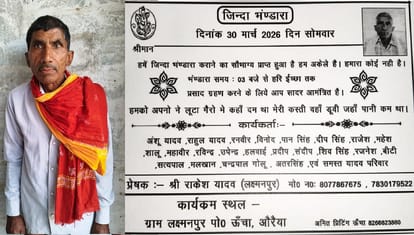 जिन्दा भण्डारा
दिनांक 30 मार्च 2026 दिन सोमवार
श्रीमान
हमें जिन्दा भण्डारा कराने का सौभाग्य प्राप्त हुआ है हम अकेले है। हमारा कोई नही है।
भण्डारा समय : 03 बजे से हरि ईच्छा तक
प्रसाद ग्रहण करने के लिए आप सादर आमंत्रित है।
हमको अपनो ने लूटा गैरो मे कहाँ दम था मेरी कस्ती वहाँ डूबी जहाँ पानी कम था।
कार्यकर्ताः-
अंशू यादव, राहुल यादव, रनवीर, विनोद, पान सिंह, दीप सिंह, राजेश, महेश
शालू, महावीर, रविन्द्र, उपेन्द्र, हलचाई, प्रदीप, संदीप, शिव सिंह, रजनेश, बीटी,
सत्यपाल, मलखान, चन्द्रपाल गोलू, अतरसिंह, एवं समस्त यादव परिवार
प्रेषक:- श्री राकेश यादव (लक्ष्मनपुर) मो० नं०: 8077867675, 7830179522
कार्यकम स्थल -
ग्राम लक्ष्मनपुर पो० ऊँचा, औरैया
अनित प्रिंटिंग ऊँचा. 8266823880